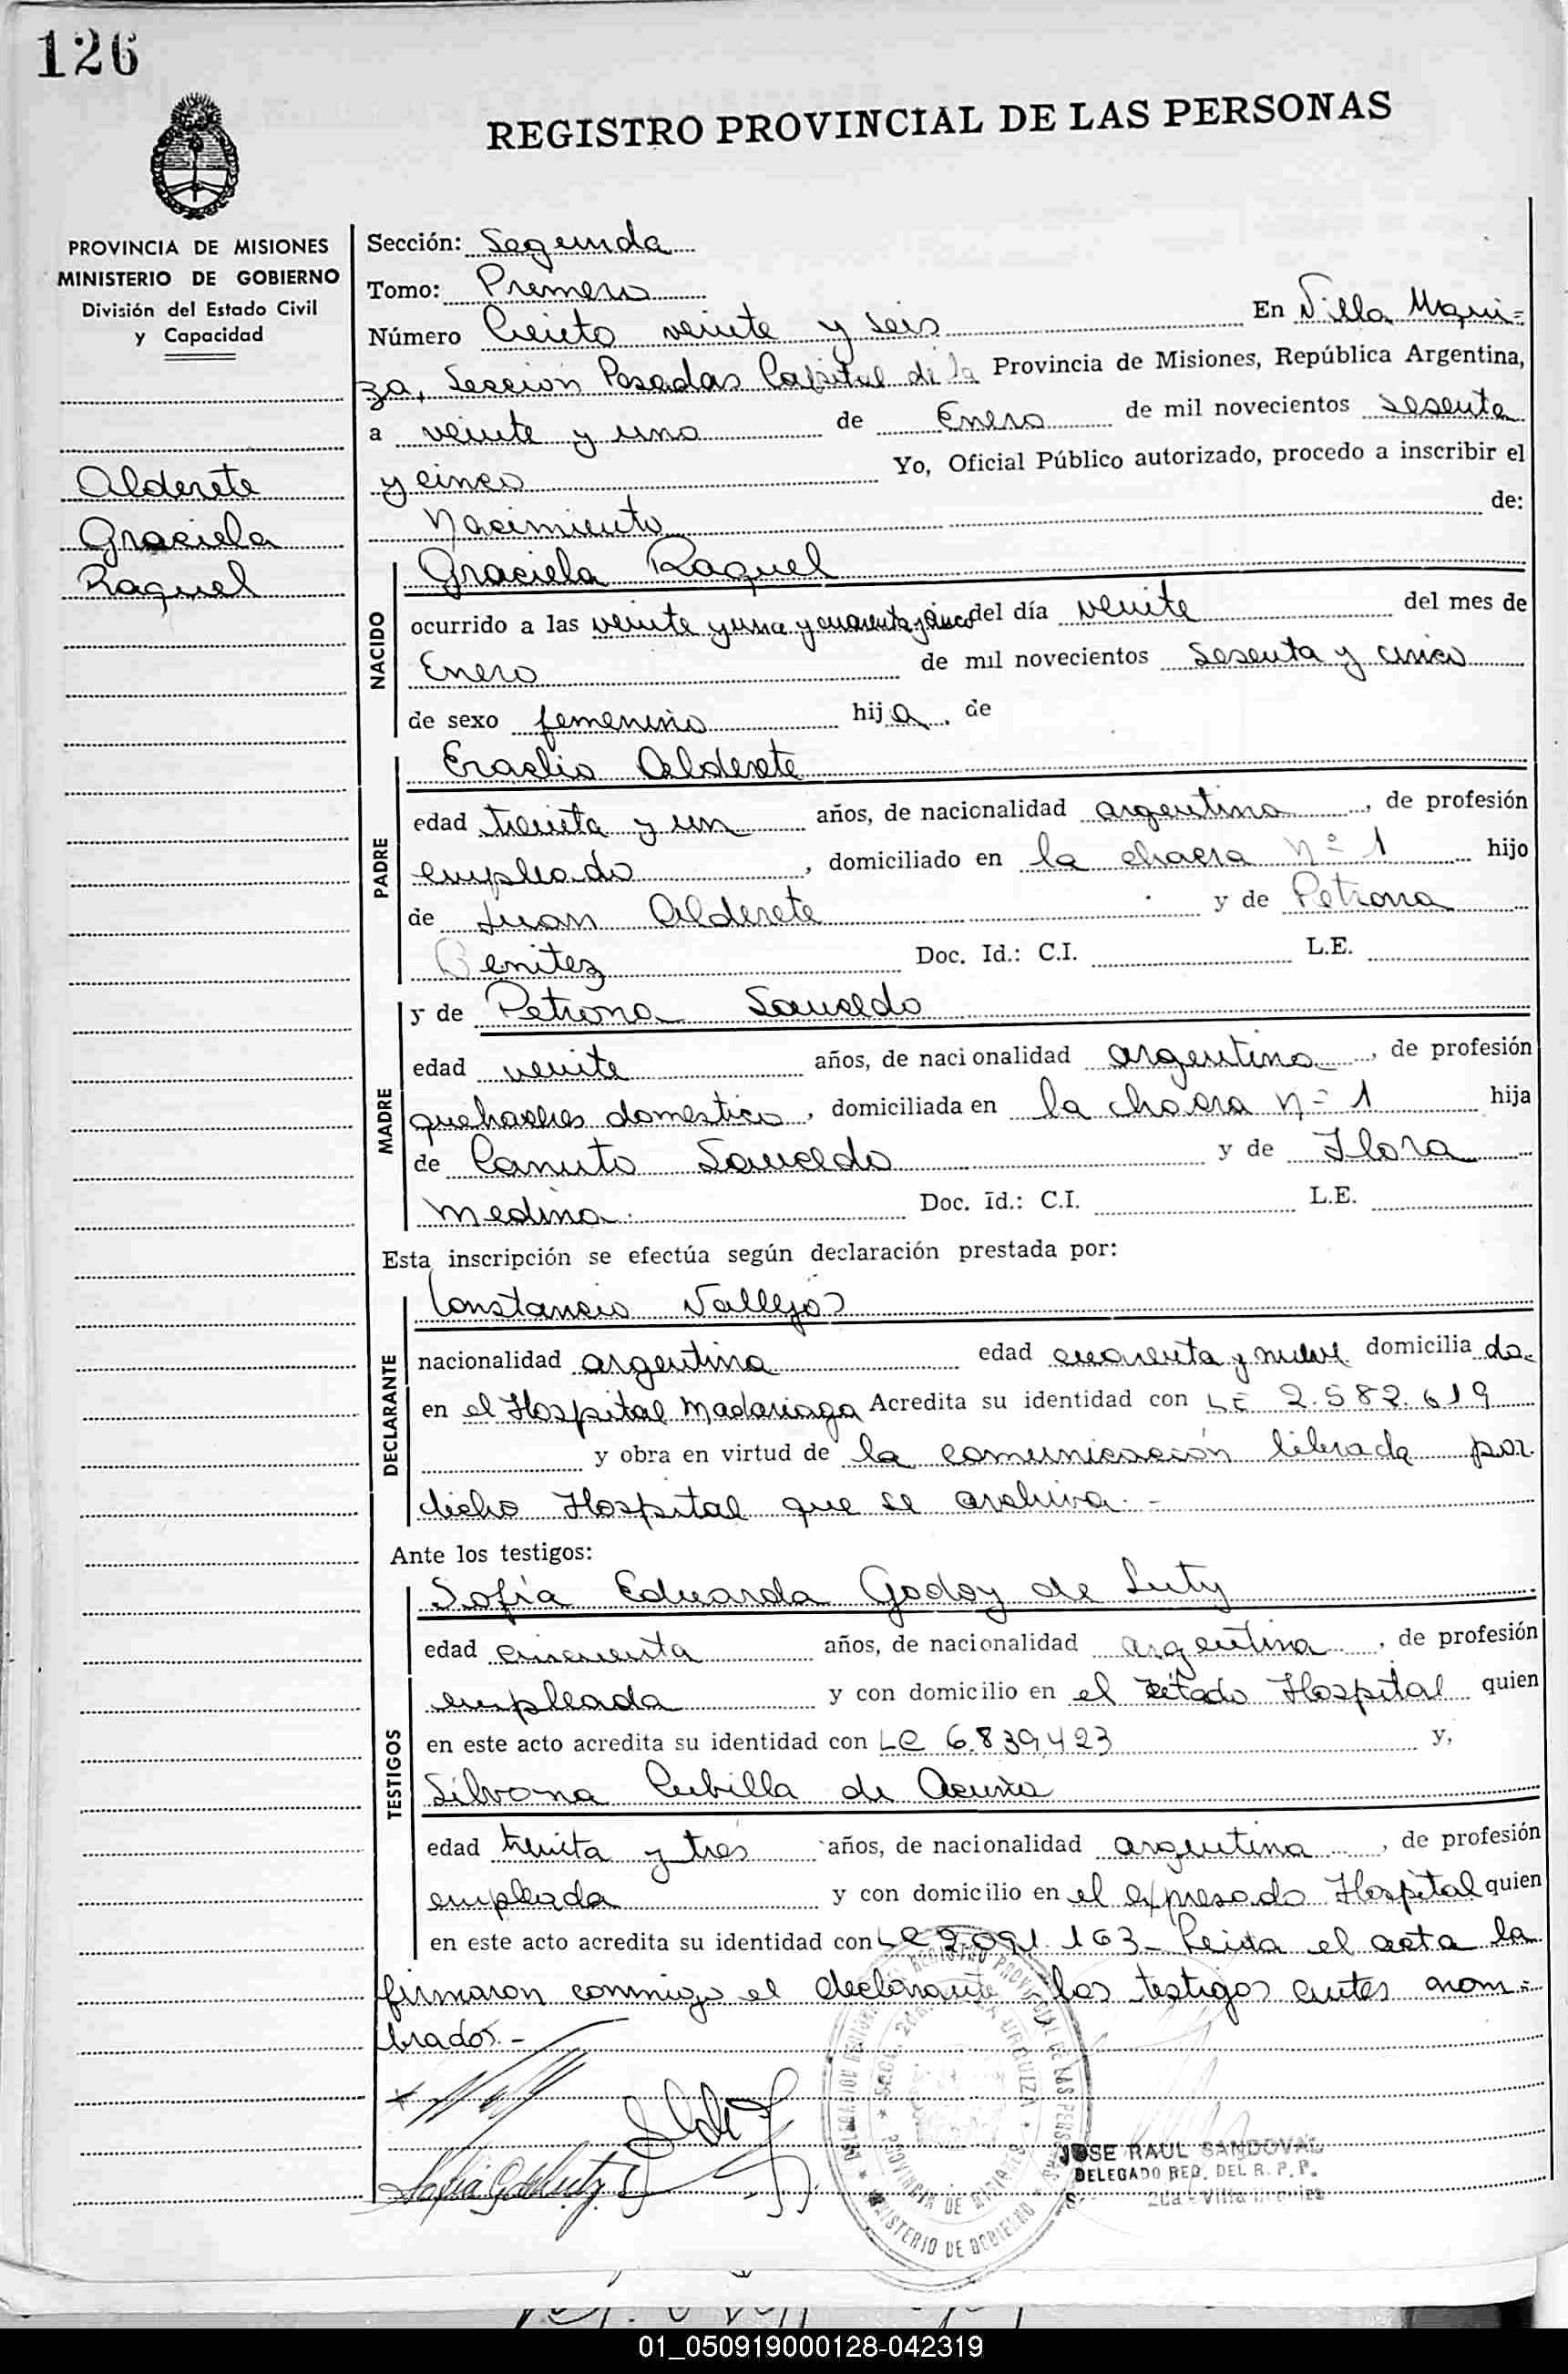 126
REGISTRO PROVINCIAL DE LAS PERSONAS
PROVINCIA DE MISIONES
MINISTERIO DE GOBIERNO
División del Estado Civil
y Capacidad
Alderete
Graciela
Raquel
Sección: Segunda
Tomo: Primero
Número Ciento veinte y seis En Villa Urqui=
za, Sección Posadas Capital de la Provincia de Misiones, República Argentina,
a veinte y uno de Enero de mil novecientos sesenta
y cinco Yo, Oficial Público autorizado, procedo a inscribir el
Nacimiento de:
NACIDO
Graciela Raquel
ocurrido a las veinte y una y cuarenta y cinco del día veinte del mes de
Enero de mil novecientos sesenta y cinco
de sexo femenino hija, de
PADRE
Eraclio Alderete
edad treinta y un años, de nacionalidad argentina, de profesión
empleado, domiciliado en la chacra nº 1 hijo
de Juan Alderete y de Petrona
Benitez Doc. Id.: C.I. L.E.
MADRE
y de Petrona Saucedo
edad veinte años, de nacionalidad argentina, de profesión
quehaceres domestico, domiciliada en la chacra nº 1 hija
de Canuto Saucedo y de Flora
Medina. Doc. Id.: C.I. L.E.
Esta inscripción se efectúa según declaración prestada por:
DECLARANTE
Constancio Vallejos
nacionalidad argentina edad cuarenta y nueve domicilia do
en el Hospital Madariaga Acredita su identidad con LE 2.582.619
y obra en virtud de la comunicación librada por
dicho Hospital que se archiva.-
Ante los testigos:
TESTIGOS
Sofía Eduarda Godoy de Luty
edad cincuenta años, de nacionalidad argentina, de profesión
empleada y con domicilio en el citado Hospital quien
en este acto acredita su identidad con LC 6.839.423 y,
Silvana Cubilla de Acuña
edad treinta y tres años, de nacionalidad argentina, de profesión
empleada y con domicilio en el expresado Hospital quien
en este acto acredita su identidad con LC 9.091.163- Leida el acta la
firmaron conmigo el declarante y los testigos antes nom=
brados.-
JOSE RAUL SANDOVAL
DELEGADO REG. DEL R. P. P.
MINISTERIO DE GOBIERNO
PROVINCIA DE MISIONES
01_050919000128-042319